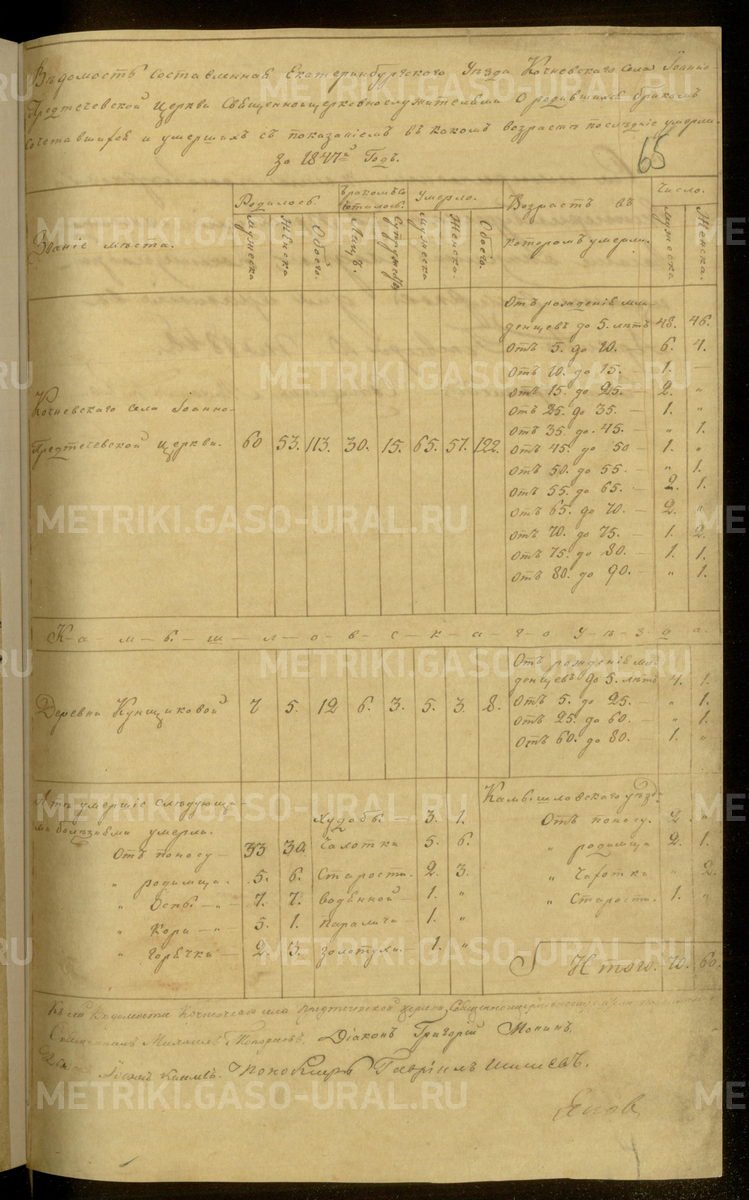 Вѣдомость составленная Екатеринбургскаго Уѣзда Кочневскаго села Іоанно-
Предтечевской Церкви Священноцерковнослужителями О родившихся бракомъ
сочетавшихся и умершихъ съ показаніемъ въ какомъ возрастѣ послѣдніе умерли
за 1847й Годъ.
65
Званіе мѣста.
Родилось.
Бракомъ со-
четалось.
Умерло.
Возрастъ въ
которомъ умерли.
Число.
Мужеска Женска Обоего. Лицъ. Супружествъ Мужеска Женска. Обоего. Мужеска Женска.
Отъ рожденія мла-
денцевъ до 5. лѣтъ 48. 46.
Отъ 5. до 10. 6. 4.
Отъ 10. до 15. — 1. —
Отъ 15. до 25. — 2. „
Отъ 25. до 35. — 1. „
Отъ 35. до 45. — „ 1.
Отъ 45. до 50 — 1. „
Отъ 50. до 55. — „ 1.
Отъ 55. до 65. — 2. 1.
Отъ 65. до 70. — 2. „
Отъ 70. до 75. — 1. 2.
Отъ 75. до 80. — 1. 1.
Отъ 80. до 90. — „ 1.
Кочневскаго села Іоанно-
Предтечевской Церкви. 60 53. 113. 30. 15. 65. 57. 122.
К-а-м-ы-ш-л-о-в-с-к-а-г-о У-ѣ-з-д-а.
Отъ рожденія мла-
денцевъ до 5. лѣтъ 4. 1.
Отъ 5. до 25. — „ 1.
Отъ 25. до 60. — „ 1.
Отъ 60. до 80. 1. „
Деревни Кунщиковой 7 5. 12 6. 3. 5. 3. 8.
умершіе слѣдующи-
ми болѣзнями умерли.
Отъ поносу — 33 30.
„ родимца. 5. 6.
„ Оспы — 7. 7.
„ Кори — 5. 1.
„ Горячки — 2 3.
Худобы — 3. 1.
Чахотки 5. 6.
Старости. 2. 3.
водяной — 1. „
Паралича — 1. „
золотухи. — 1. „
Камышловскаго уѣзд:
Отъ поносу. 2. „
„ родимца 2. 1.
„ Чахотки „ 2.
„ Старости. 1. „
Итого. 70. 60.
Къ сей Вѣдомости Кочневскаго села Предтечевской церкви Священноцерковнослужители
Священникъ Михаилъ Діаконъ Григорій Нонинъ.
Пономарь Гавріилъ Шишевъ.
METRIKI.GASO-URAL.RU